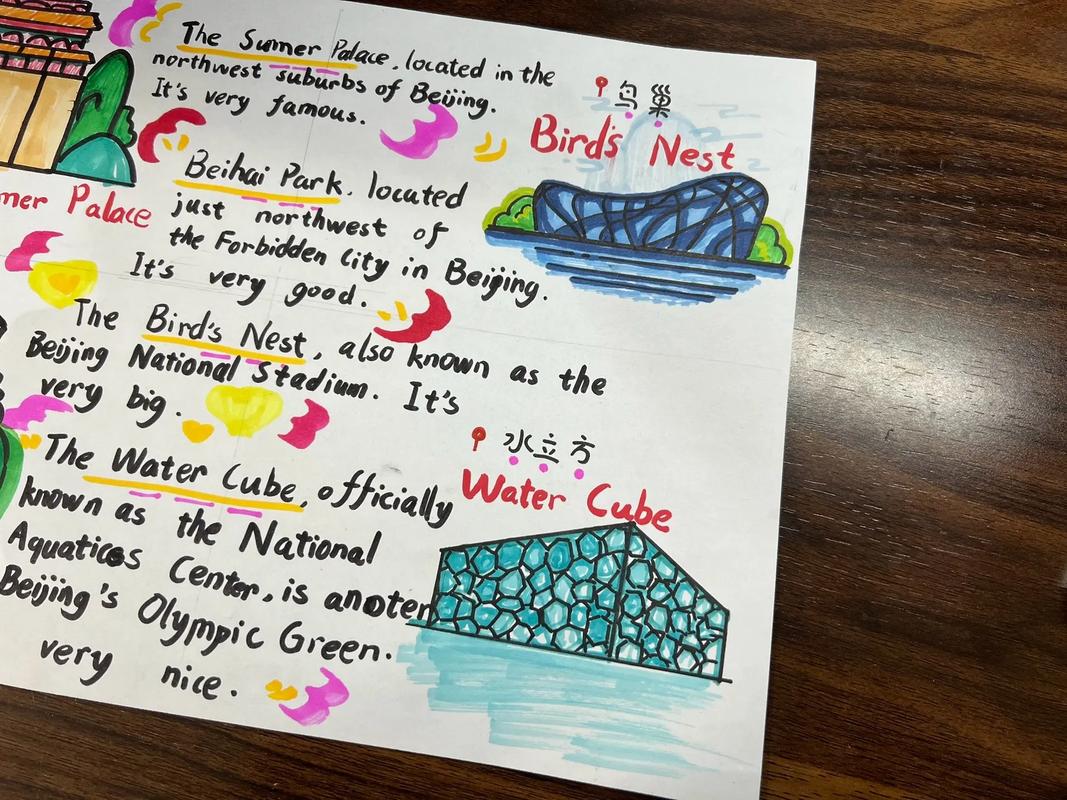 The Sumer Palace, located in the
northwest suburbs of Beijing.
It's very famous.
mer Palace
Beihai Park, located
just northwest of
the Forbidden City in Beijing.
It's very good.
鸟巢
Bird's Nest
The Bird's Nest, also known as the
Beijing National Stadium. It's
very big.
水立方
Water Cube
The Water Cube, officially
known as the National
Aquatics Center, is anoter
Beijing's Olympic Green.
very nice.